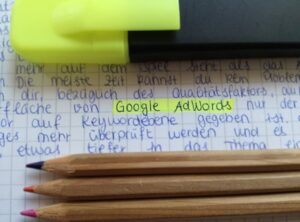 mehr auf dem Spiel steht als das A
Die meiste Zeit kannst du kein
dir, bezüglich des Qualitätsfaktors, auf
erfläche von Google AdWords nur der
or auf Keywordebene gegeben ist.
ges mehr überprüft werden und es
etwas tiefer in das Thema ein